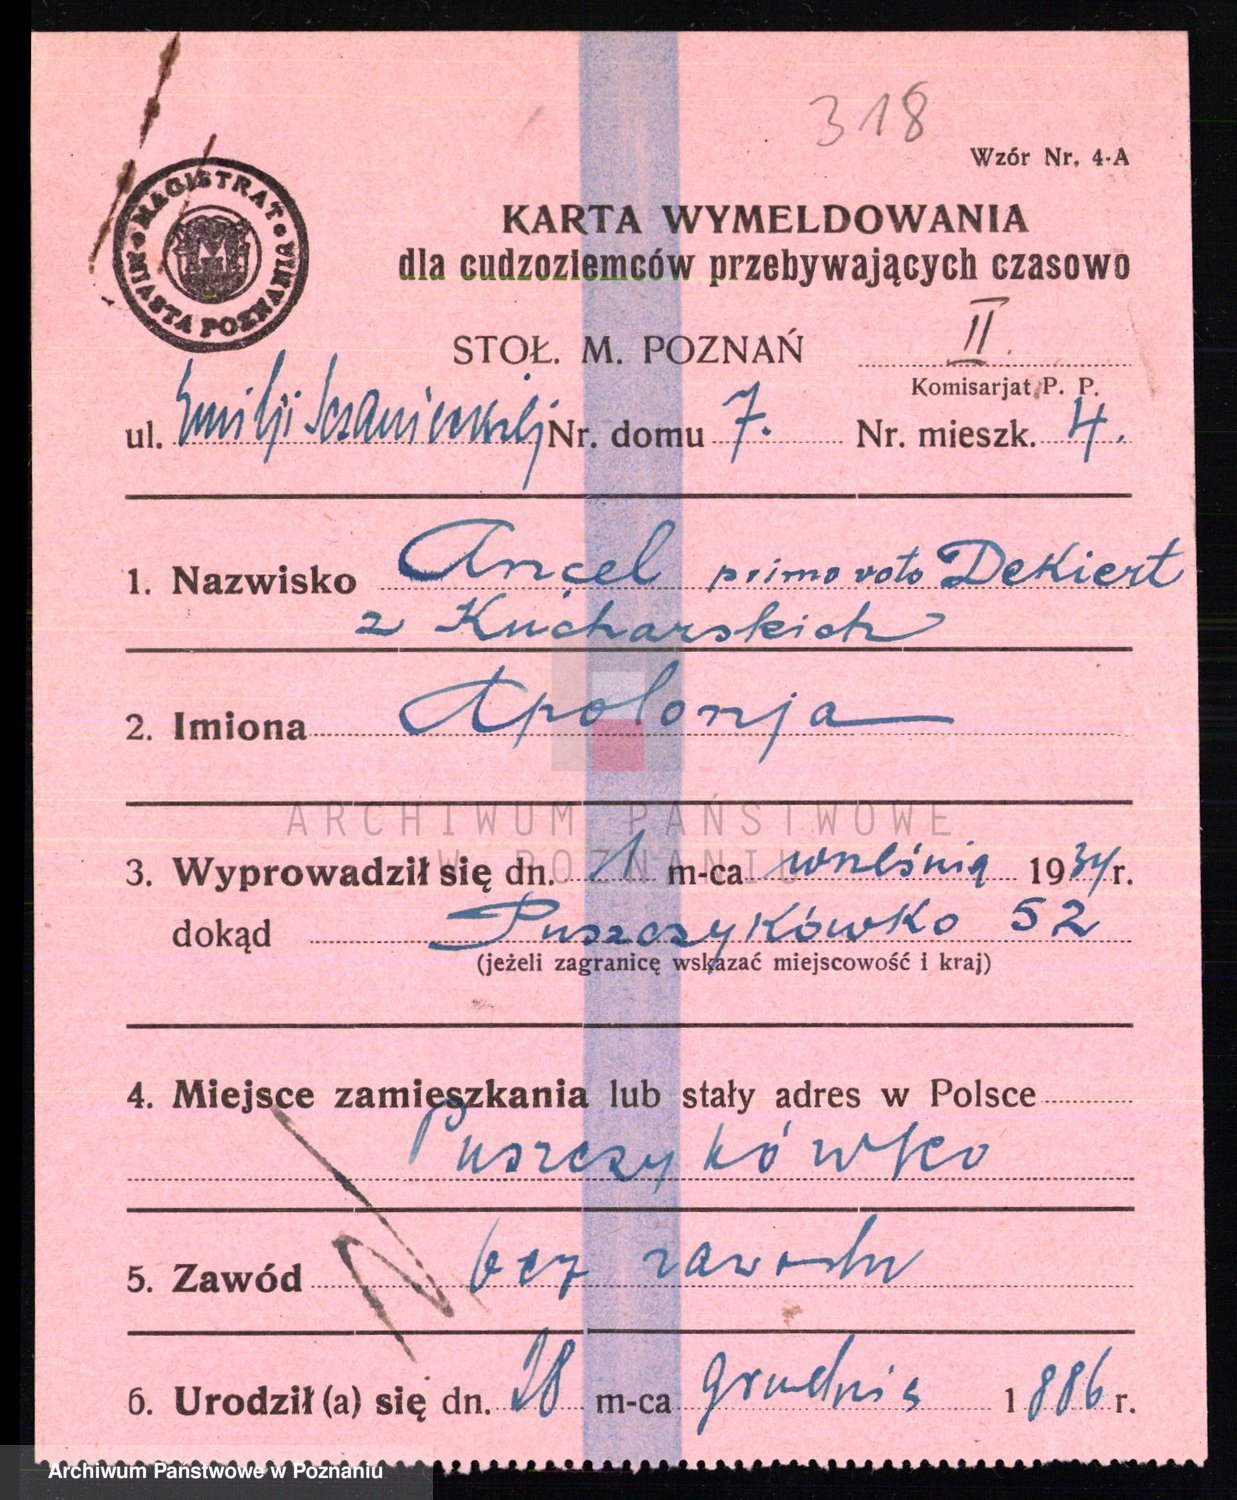 318
Wzór Nr. 4-A
MAGISTRAT MIASTA POZNANIA
KARTA WYMELDOWANIA
dla cudzoziemców przebywających czasowo
STOŁ. M. POZNAŃ II.
Komisarjat P. P.
ul. Emilji Sczanieckiej Nr. domu 7. Nr. mieszk. 4.
1. Nazwisko Ancel primo voto Dekiert
z Kucharskich
2. Imiona Apolonja
ARCHIWUM PAŃSTWOWE
W POZNANIU
3. Wyprowadził się dn. 1 m-ca września 1934 r.
dokąd Puszczykówko 52
(jeżeli zagranicę wskazać miejscowość i kraj)
4. Miejsce zamieszkania lub stały adres w Polsce
Puszczykówko
5. Zawód bez zawodu
6. Urodził (a) się dn. 28 m-ca grudnia 1886 r.
Archiwum Państwowe w Poznaniu